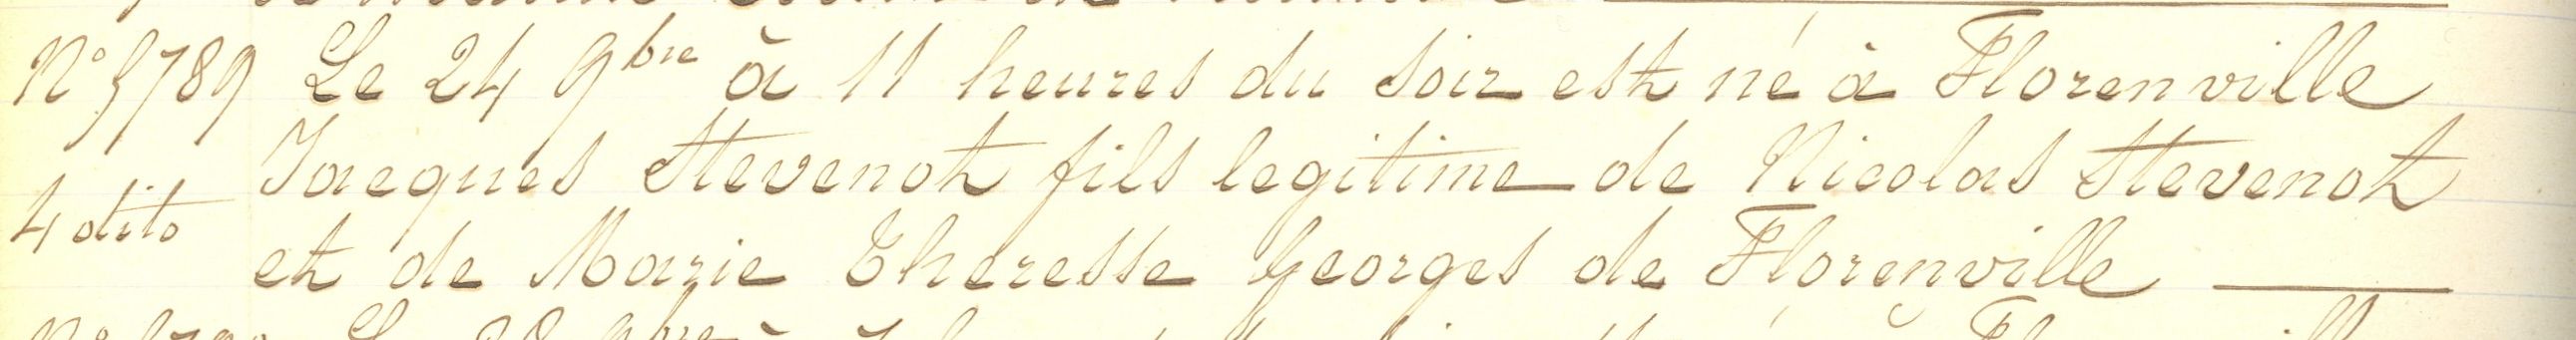 N° 5789 Le 24 9bre à 11 heures du soir est né à Florenville
Jacques Stevenot fils legitime de Nicolas Stevenot
4 dito et de Marie Theresse Georges de Florenville